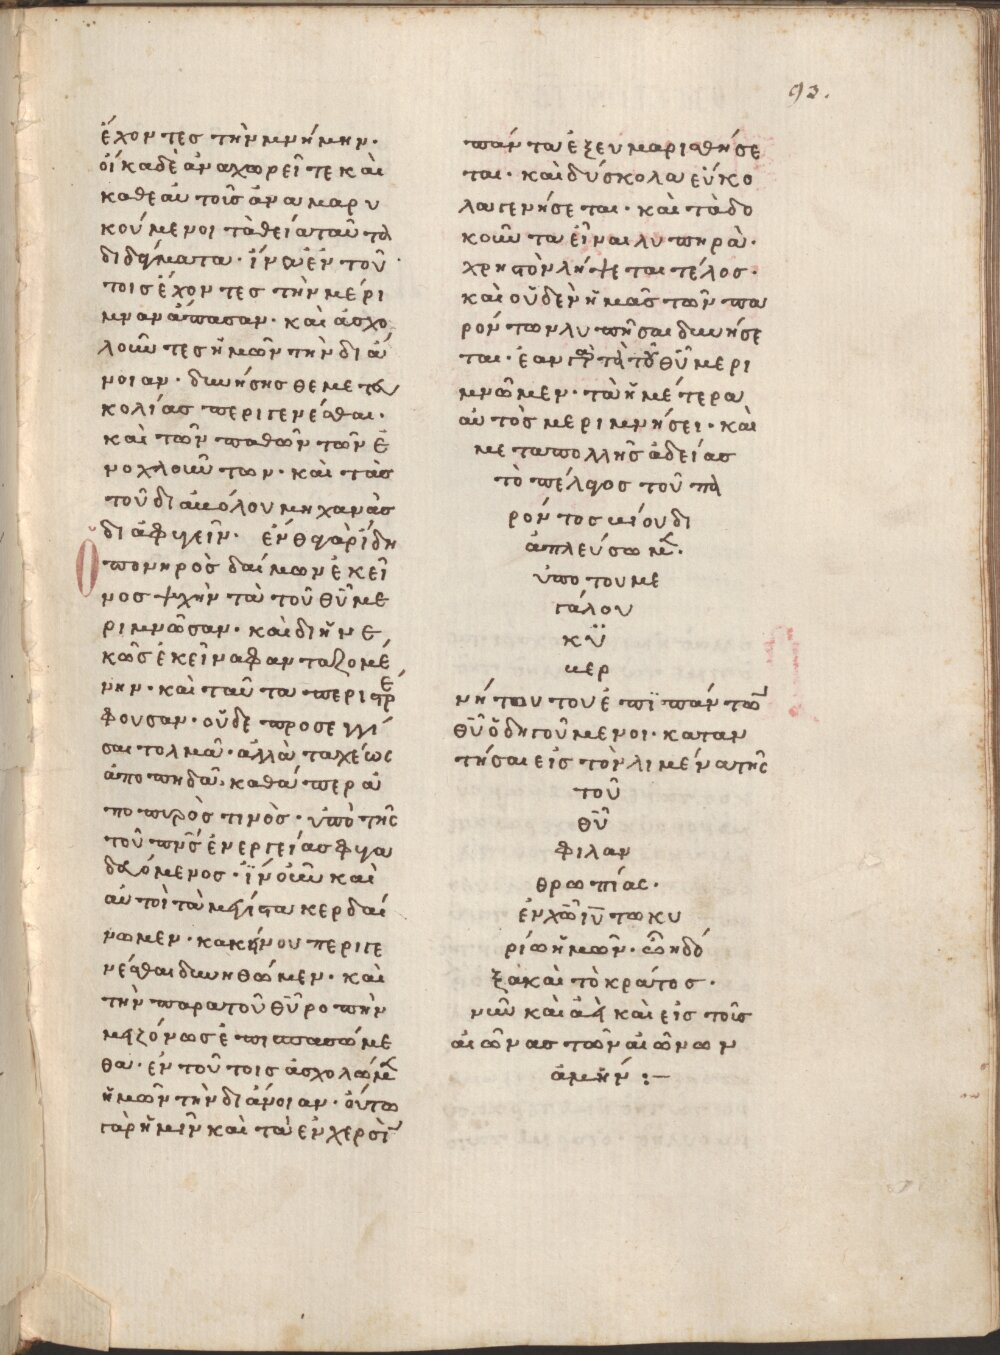 93.
ἔχοντες τὴν μνήμην·
οἴκαδε ἀναχωρεῖτε καὶ
καθ' ἑαυτοῖς ἀναμαρυ
κούμενοι τὰ θεῖα ταῦτα
διδάγματα· ἵνα ἐν τού
τοις ἔχοντες τὴν μέρι
μναν ἅπασαν· καὶ ἀσχο
λοῦντες ὑμῶν τὴν διά
νοιαν· δυνήσησθε με
κολίας περιγενέσθαι·
καὶ τῶν παθῶν τῶν ἐ
νοχλούντων· καὶ τὰς
τοῦ διαβόλου μηχανὰς
διαφυγεῖν. ἔνθα γὰρ ἴδῃ
ὁ πονηρὸς δαίμων ἐκεῖ
νος ψυχὴν τὰ τοῦ θῦ με
ριμνῶσαν· καὶ διηνε
κῶς ἐκεῖνα φανταζομέ
νην· καὶ ταῦτα περιφέ
ρουσαν· οὐδὲ προσεγγί
σαι τολμᾶ· ἀλλὰ ταχέως
ἀποπηδᾶ· καθάπερ ἀ
πὸ πυρός τινος· ὑπὸ τῆς
τοῦ πνς ἐνεργείας φυγα
δευόμενος· ἵν' οὖν καὶ
αὐτοὶ τὰ μέγιστα κερδαί
νωμεν· κἀκείνου περιγε
νέσθαι δυνηθῶμεν· καὶ
τὴν παρὰ τοῦ θῦ ῥοπὴν
μειζόνως ἐπισπασώμε
θα· ἐν τούτοις ἀσχολῶμεν
ἡμῶν τὴν διάνοιαν· οὕτω
γὰρ ἡμῖν καὶ τὰ ἐν χερσὶ
πάντα ἐξευμαρισθήσε
ται· καὶ δύσκολα εὔκο
λα γενήσεται· καὶ τὰ δο
κοῦντα εἶναι λυπηρὰ·
χρηστὸν λήψεται τέλος·
καὶ οὐδὲν ἡμᾶς τῶν πα
ρόντων λυπῆσαι δυνήσε
ται· ἐὰν γὰρ τὰ τοῦ θῦ μερι
μνῶμεν· τὰ ἡμέτερα
αὐτὸς μεριμνήσει· καὶ
μετὰ πολλῆς ἀδείας
τὸ πέλαγος τοῦ πα
ρόντος βίου δι
απλεύσωμεν·
ὑπὸ τοῦ με
γάλου
κυ
βερ
νήτου τοῦ ἐπὶ πάντων
θῦ ὁδηγούμενοι· καταν
τῆσαι εἰς τὸν λιμένα τῆς
τοῦ
θῦ
φιλαν
θρωπίας·
ἐν χῶ ἰῦ τῶ κυ
ρίω ἡμῶν· ὧ ἡ δό
ξα καὶ τὸ κράτος·
νῦν καὶ ἀεὶ καὶ εἰς τοὺς
αἰῶνας τῶν αἰώνων
ἀμήν :—